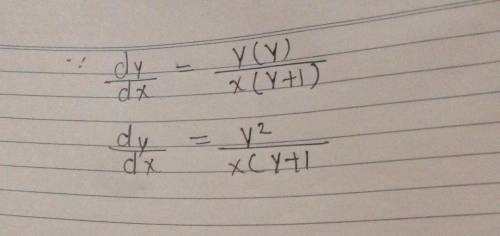 ∵ dy/dx = y(y)/x(y+1)
dy/dx = y²/x(y+1